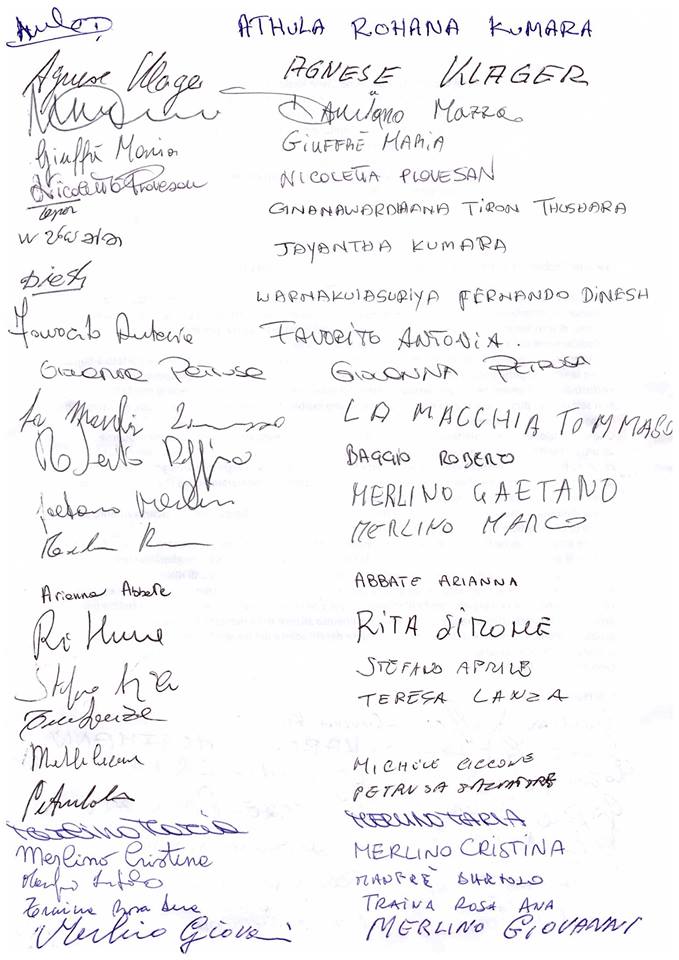 ATHULA ROHANA KUMARA
Agnese Klager AGNESE KLAGER
Damiano Mazza
Giuffrè Maria GIUFFRÈ MARIA
Nicoletta Piovesan NICOLETTA PIOVESAN
GNANAWARDHANA TIRON THUSHARA
JAYANTHA KUMARA
WARNAKULASURIYA FERNANDO DINESH
Favorito Antonia FAVORITO ANTONIA.
GIOVANNA PETRUSA GIOVANNA PETRUSA
LA MACCHIA TOMMASO
Roberto Baggio BAGGIO ROBERTO
Gaetano Merlino MERLINO GAETANO
MERLINO MARCO
Arianna Abbate ABBATE ARIANNA
RITA SIMONE
Stefano STEFANO APRILE
TERESA LANZA
MICHELE CICCONE
PETRUSA SALVATORE
Merlino Maria MERLINO MARIA
Merlino Cristina MERLINO CRISTINA
MANFRÈ BARTOLO
Traina Rosa Ana TRAINA ROSA ANA
Merlino Giovanni MERLINO GIOVANNI